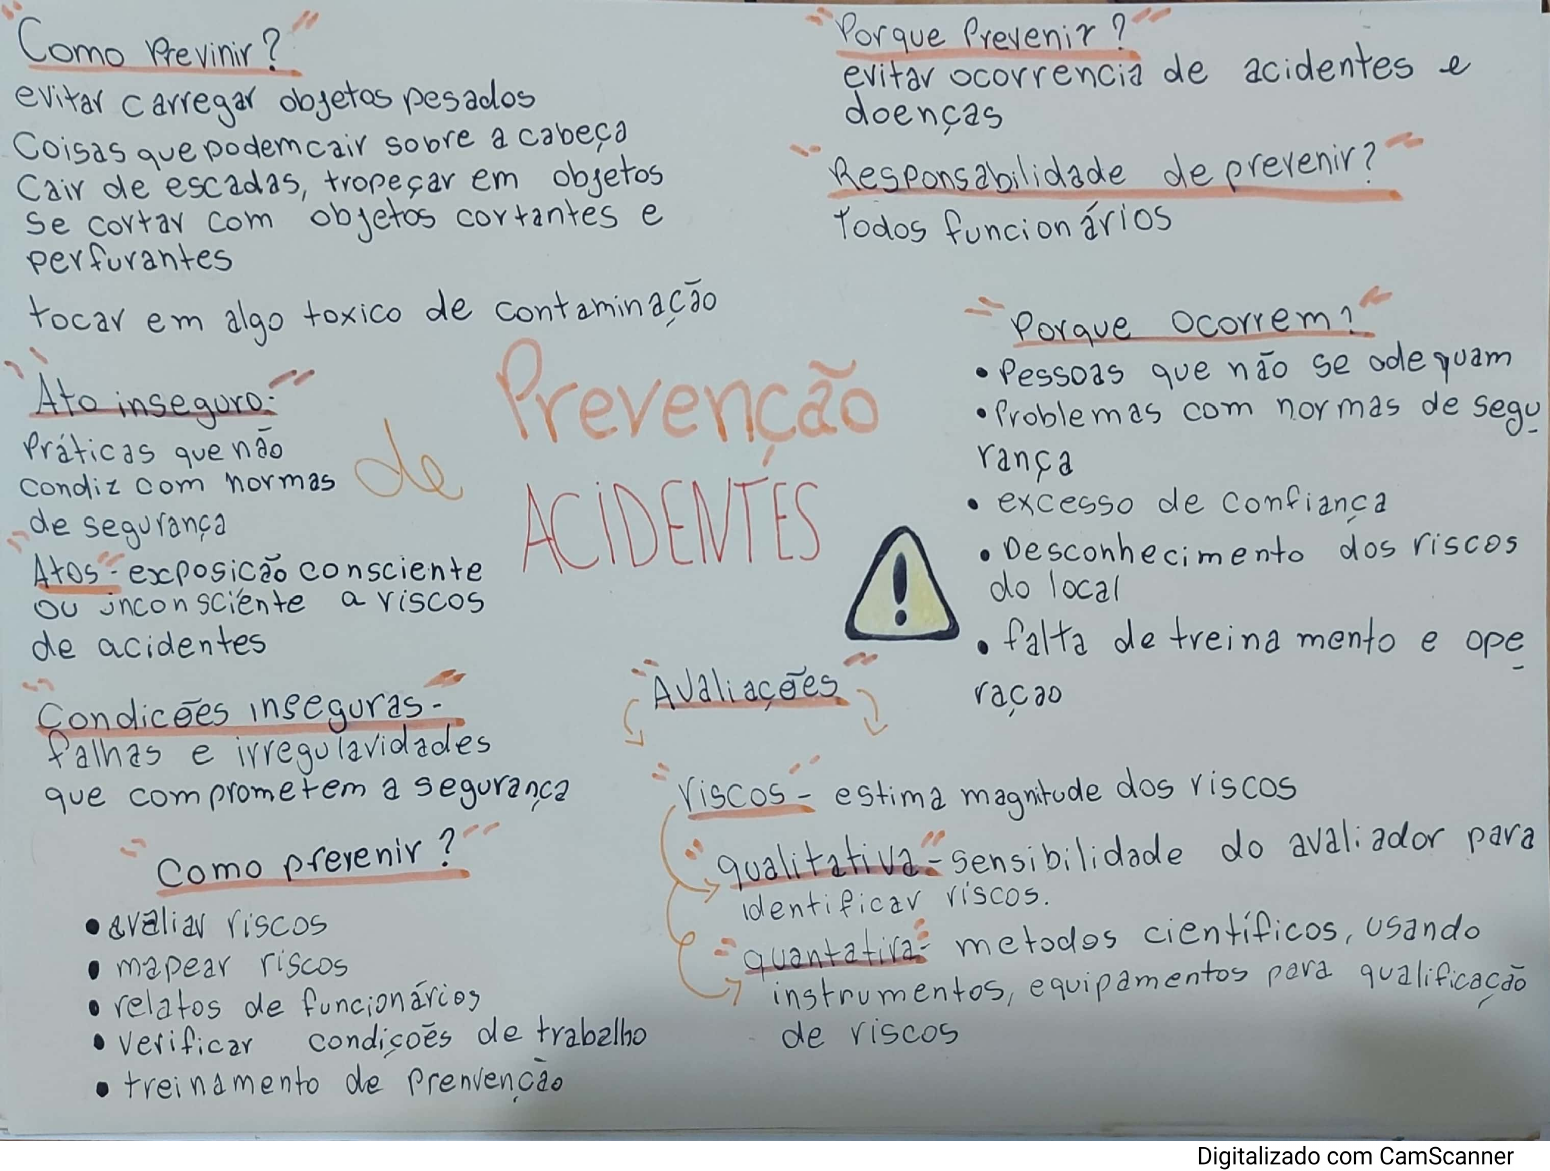 "Como Previnir?"
evitar carregar objetos pesados
Coisas que podem cair sobre a cabeça
Cair de escadas, tropeçar em objetos
Se cortar com objetos cortantes e
perfurantes
tocar em algo toxico de contaminação
"Ato inseguro:"
Práticas que não
condiz com normas
de segurança
"Atos"- exposição consciente
ou inconsciente a riscos
de acidentes
"Condições inseguras"-
falhas e irregularidades
que comprometem a segurança
"Como prevenir?"
• avaliar riscos
• mapear riscos
• relatos de funcionários
• verificar condições de trabalho
• treinamento de prenvenção
Prevenção
de
ACIDENTES
"Porque Prevenir?"
evitar ocorrencia de acidentes e
doenças
"Responsabilidade de prevenir?"
Todos funcionários
"Porque ocorrem?"
• Pessoas que não se adequam
• Problemas com normas de segu
rança
• excesso de confiança
• Desconhecimento dos riscos
do local
• falta de treinamento e ope
raçao
!
"Avaliações"
"riscos"- estima magnitude dos riscos
"qualitativa"- sensibilidade do avaliador para
identificar riscos.
"quantativa"- metodos científicos, usando
instrumentos, equipamentos para qualificação
de riscos
Digitalizado com CamScanner